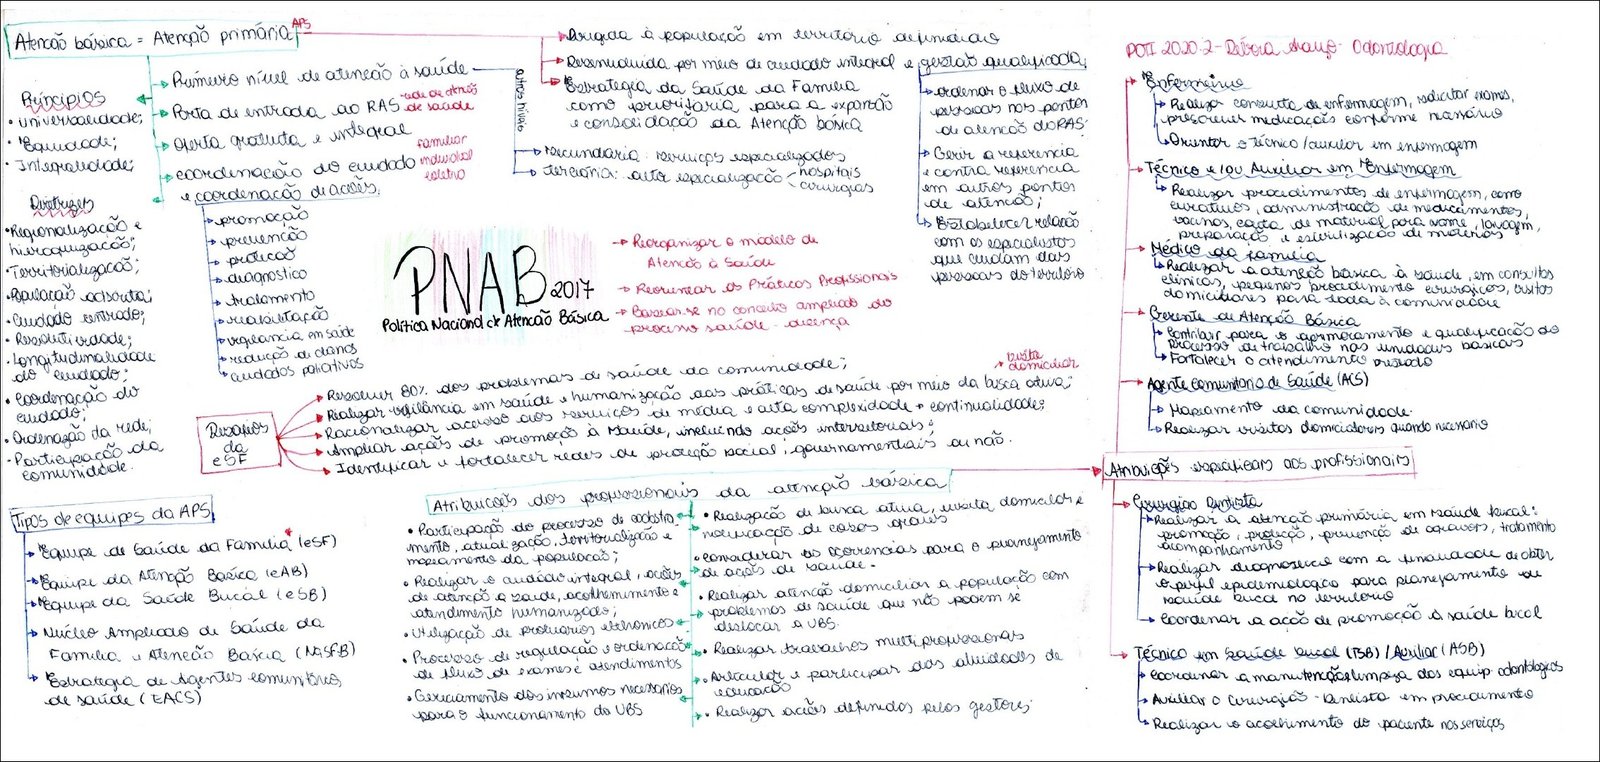 Atenção básica = Atenção primária APS
Princípios
• Universalidade;
• Equidade;
• Integralidade;
Diretrizes
• Regionalização e
hierarquização;
• Territorialização;
• População adscrita;
• Cuidado centrado;
• Resolutividade;
• Longitudinalidade
do cuidado;
• Coordenação do
cuidado;
• Ordenação da rede;
• Participação da
comunidade.
Primeiro nível de atenção à saúde
Porta de entrada ao RAS rede de atenção
de saúde
Oferta gratuita e integral
coordenação do cuidado familiar
individual
coletivo
e coordenação de ações
promoção
prevenção
proteção
diagnostico
tratamento
reabilitação
vigilancia em saúde
redução de danos
cuidados paliativos
outros níveis
secundária: serviços especializados
terciária: alta especialização hospitais
cirurgias
Dirigida à população em território definido
Desenvolvida por meio de cuidado integral e gestão qualificada
Estratégia da Saúde da Família
como prioritaria para a expansão
e consolidação da Atenção básica
ordenar o fluxo de
pessoas nos pontos
de atenção do RAS
Gerir a referencia
e contra referencia
em outros pontos
de atenção;
Estabelecer relação
com os especialistas
que cuidam das
pessoas do território
PNAB 2017
Política Nacional de Atenção Básica
Reorganizar o modelo de
Atenção à Saúde
Reorientar as Práticas Profissionais
Basear-se no conceito ampliado do
processo saúde-doença
Desafios
da
eSF
Resolver 80% dos problemas de saúde da comunidade;
Realizar vigilância em saúde e humanização das práticas de saúde por meio da busca ativa; visita
domiciliar
Racionalizar acesso aos serviços de média e alta complexidade + continualidade;
Ampliar ações de promoção à saúde, incluindo ações intersetoriais;
Identificar e fortalecer redes de proteção social, governamentais ou não.
Tipos de equipes da APS
Equipe de Saúde da Família * (eSF)
Equipe da Atenção Básica (eAB)
Equipe da Saúde Bucal (eSB)
Núcleo Ampliado de Saúde da
Família e Atenção Básica (NASFB)
Estratégia de Agentes comunitários
de saúde (EACS)
Atribuições dos profissionais da atenção básica
• Participação do processo de cadastra-
mento, atualização, territorialização e
mapeamento da população;
• Realizar o cuidado integral, ações
de atenção a saúde, acolhimento e
atendimento humanizado;
• Utilização de protuarios eletronicos
• Processo de regulação e ordenação
de fluxo de exames e atendimentos
• Gerenciamento dos insumos necessarios
para o funcionamento do UBS
• Realização de busca ativa, visita domiciliar e
notificação de casos graves
• Considerar as ocorrencias para o planejamento
de ações de saúde.
• Realizar atenção domiciliar a população com
problemas de saúde que não podem se
deslocar a UBS.
• Realizar trabalhos multiprofissionais
• Articular e participar das atividades de
educação
• Realizar ações definidas pelos gestores.
POTI 2020.2 - Débora Araujo - Odontologia
Enfermeiro
Realizar consulta de enfermagem, solicitar exames,
prescrever medicações conforme necessário
Orientar o técnico/auxiliar em enfermagem
Técnico e/ou Auxiliar em Enfermagem
Realizar procedimentos de enfermagem, como
curativos, administração de medicamentos,
vacinas, coleta de material para exame, lavagem,
preparação e esterilização de materiais
Médico da Família
Realizar a atenção básica à saúde, em consultas
clínicas, pequenos procedimento cirurgicos, visitas
domiciliares para toda a comunidade
Gerente de Atenção Básica
Contribir para o aprimoramento e qualificação do
processo de trabalho nas unidades básicas
Fortalecer o atendimento prestado
Agente comunitario de Saúde (ACS)
Mapeamento da comunidade.
Realizar visitas domiciliares quando necessario
Atribuições especificas aos profissionais
Cirurgião Dentista
Realizar a atenção primária em saúde bucal:
promoção, proteção, prevenção de agravos, tratamento
acompanhamento
Realizar diagnostico com a finalidade de obter
o perfil epidemiologico para planejamento de
saúde bucal no território
coordenar a ação de promoção à saúde bucal
Técnico em Saúde bucal (TSB) / Auxiliar (ASB)
Coordenar a manutenção/limpeza dos equip. odontologicos
Auxiliar o cirurgião-dentista em procedimento
Realizar o acolhimento do paciente nos serviços